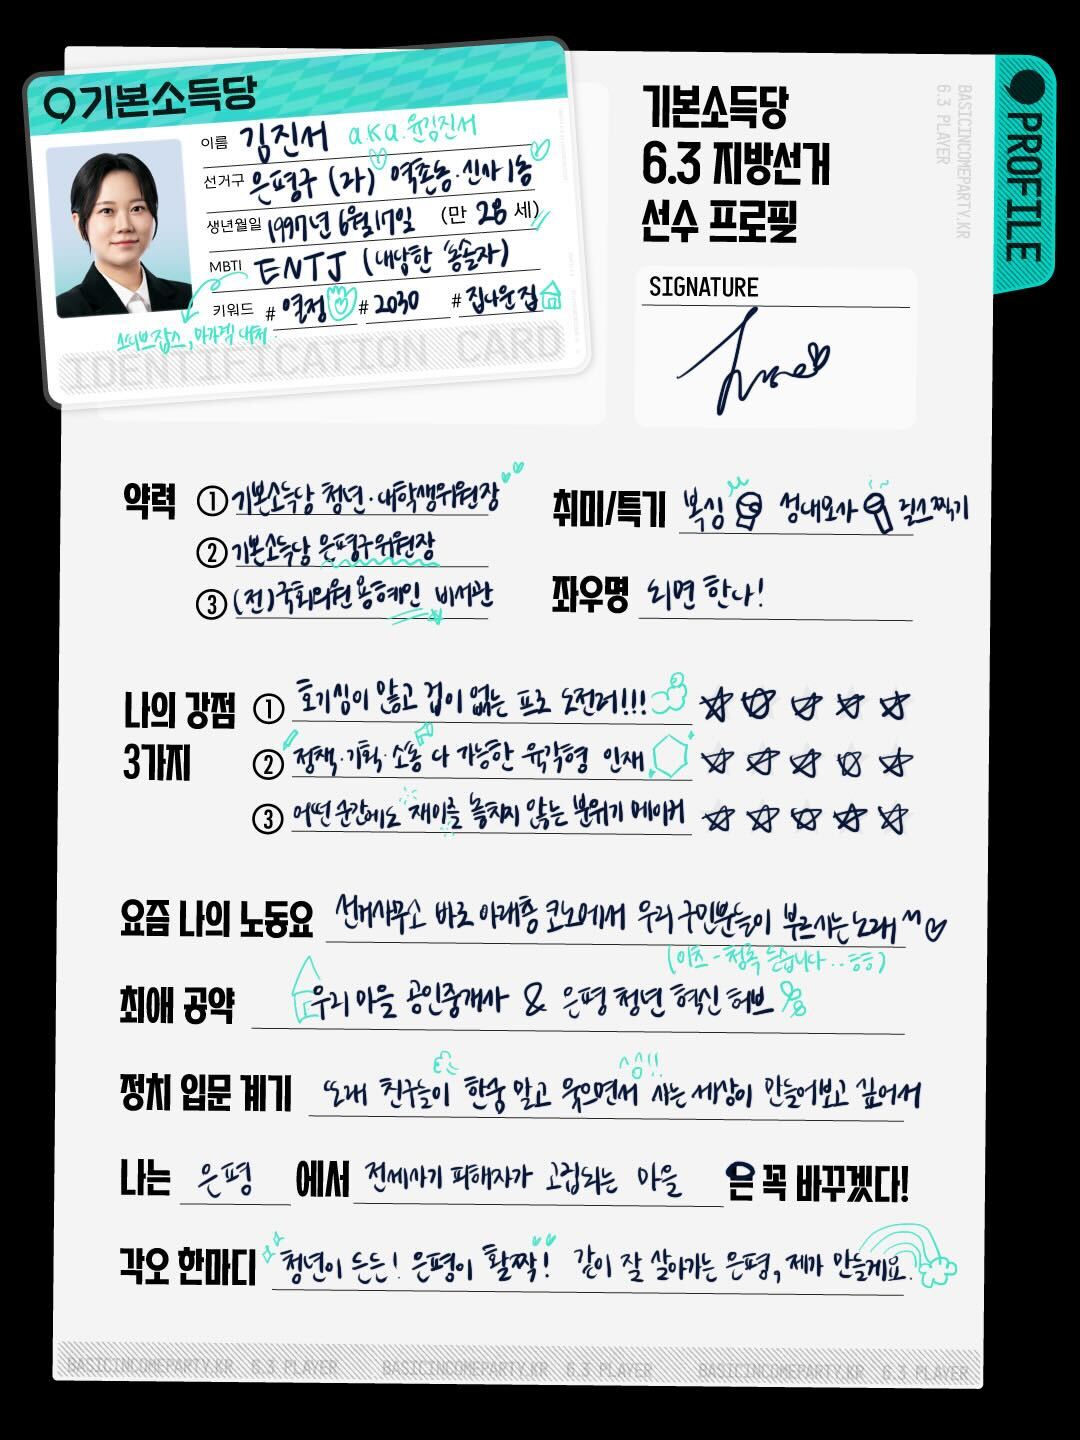 기본소득당
이름 김진서 a.k.a. 윤김진서
선거구 은평구 (라) 역촌동·신사1동
생년월일 1997년 6월 17일 (만 28 세)
MBTI ENTJ (대담한 통솔자)
키워드 #열정 #2030 #집나온집
스티브잡스,
IDENTIFICATION CARD
기본소득당
6.3 지방선거
선수 프로필
SIGNATURE
PROFILE
BASICINCOMEPARTY.KR
6.3 PLAYER
약력 ① 기본소득당 청년·대학생위원장
② 기본소득당 은평구위원장
③ (전)국회의원 용혜인 비서관
취미/특기 복싱 성대모사 릴스찍기
좌우명 되면 한다!
나의 강점
3가지
① 호기심이 많고 겁이 없는 프로 도전러!!!
② 정책·기획·소통 다 가능한 육각형 인재
③ 어떤 순간에도 재미를 놓치지 않는 분위기 메이커
요즘 나의 노동요 선거사무소 바로 아래층 코노에서 우리 구민분들이 부르시는 노래^^
(이츠-청록 듣습니다..ㅎㅎ)
최애 공약 우리 마을 공인중개사 & 은평 청년 혁신 허브
정치 입문 계기 또래 친구들이 한숨 말고 웃으면서 사는 세상이 만들어보고 싶어서
나는 은평 에서 전세사기 피해자가 고립되는 마을 은 꼭 바꾸겠다!
각오 한마디 청년이 든든! 은평이 활짝! 같이 잘 살아가는 은평, 제가 만들게요.
BASICINCOMEPARTY.KR 6.3 PLAYER BASICINCOMEPARTY.KR 6.3 PLAYER BASICINCOMEPARTY.KR 6.3 PLAYER